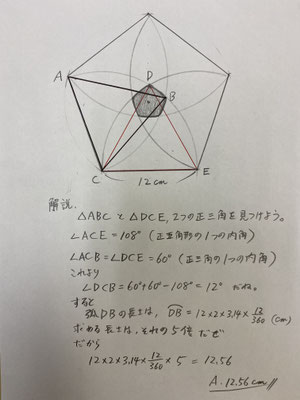 A
D
B
C
12cm
E
解説.
△ABC と △DCE, 2つの正三角を見つけよう。
∠ACE = 108° (正五角形の1つの内角)
∠ACB = ∠DCE = 60° (正三角の1つの内角)
これより
∠DCB = 60° + 60° - 108° = 12° だね。
すると
弧DBの長さは, DB = 12×2×3.14× 12/360 (cm)
求める長さは、それの5倍だぜ
だから
12×2×3.14× 12/360 ×5 = 12.56
A. 12.56cm //